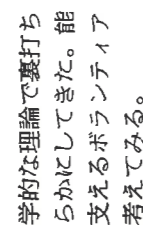 学的な理論で裏打ち
らかにしてきた。能
支えるボランティア
考えてみる。